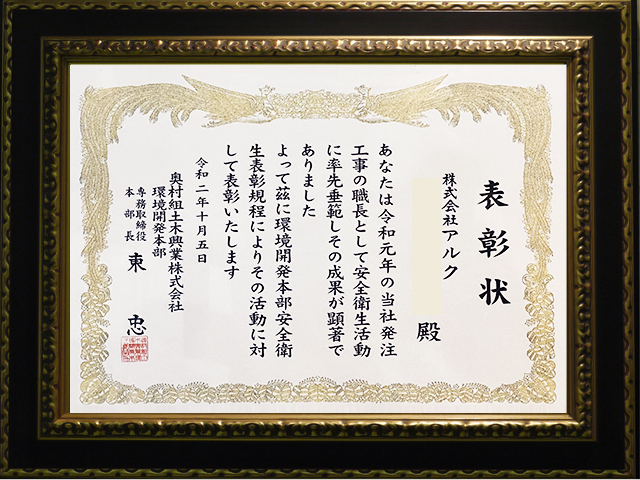 表彰状
株式会社アルク
殿
あなたは令和元年の当社発注
工事の職長として安全衛生活動
に率先垂範しその成果が顕著で
ありました
よって茲に環境開発本部安全衛
生表彰規程によりその活動に対
して表彰いたします
令和二年十月五日
奥村組土木興業株式会社
環境開発本部
専務取締役
本部長
東忠